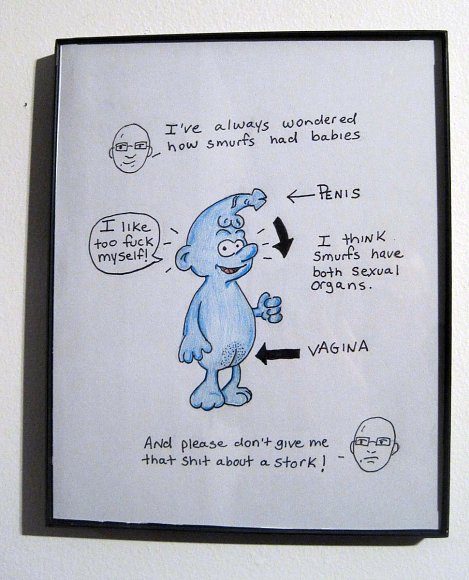 I've always wondered
how smurfs had babies
PENIS
I like
too fuck
myself!
I think
smurfs have
both sexual
organs.
VAGINA
And please don't give me
that shit about a stork!